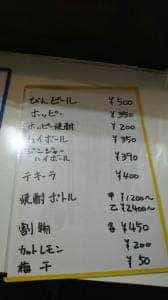 びんビール ¥500
ホッピー ¥350
ホッピー焼酎 ¥200
ハイボール ¥350
ジンジャーハイボール ¥390
テキーラ ¥400
焼酎ボトル 甲 ¥1200〜
乙 ¥2400〜
割物 各 ¥450
カットレモン ¥200
梅干 ¥50